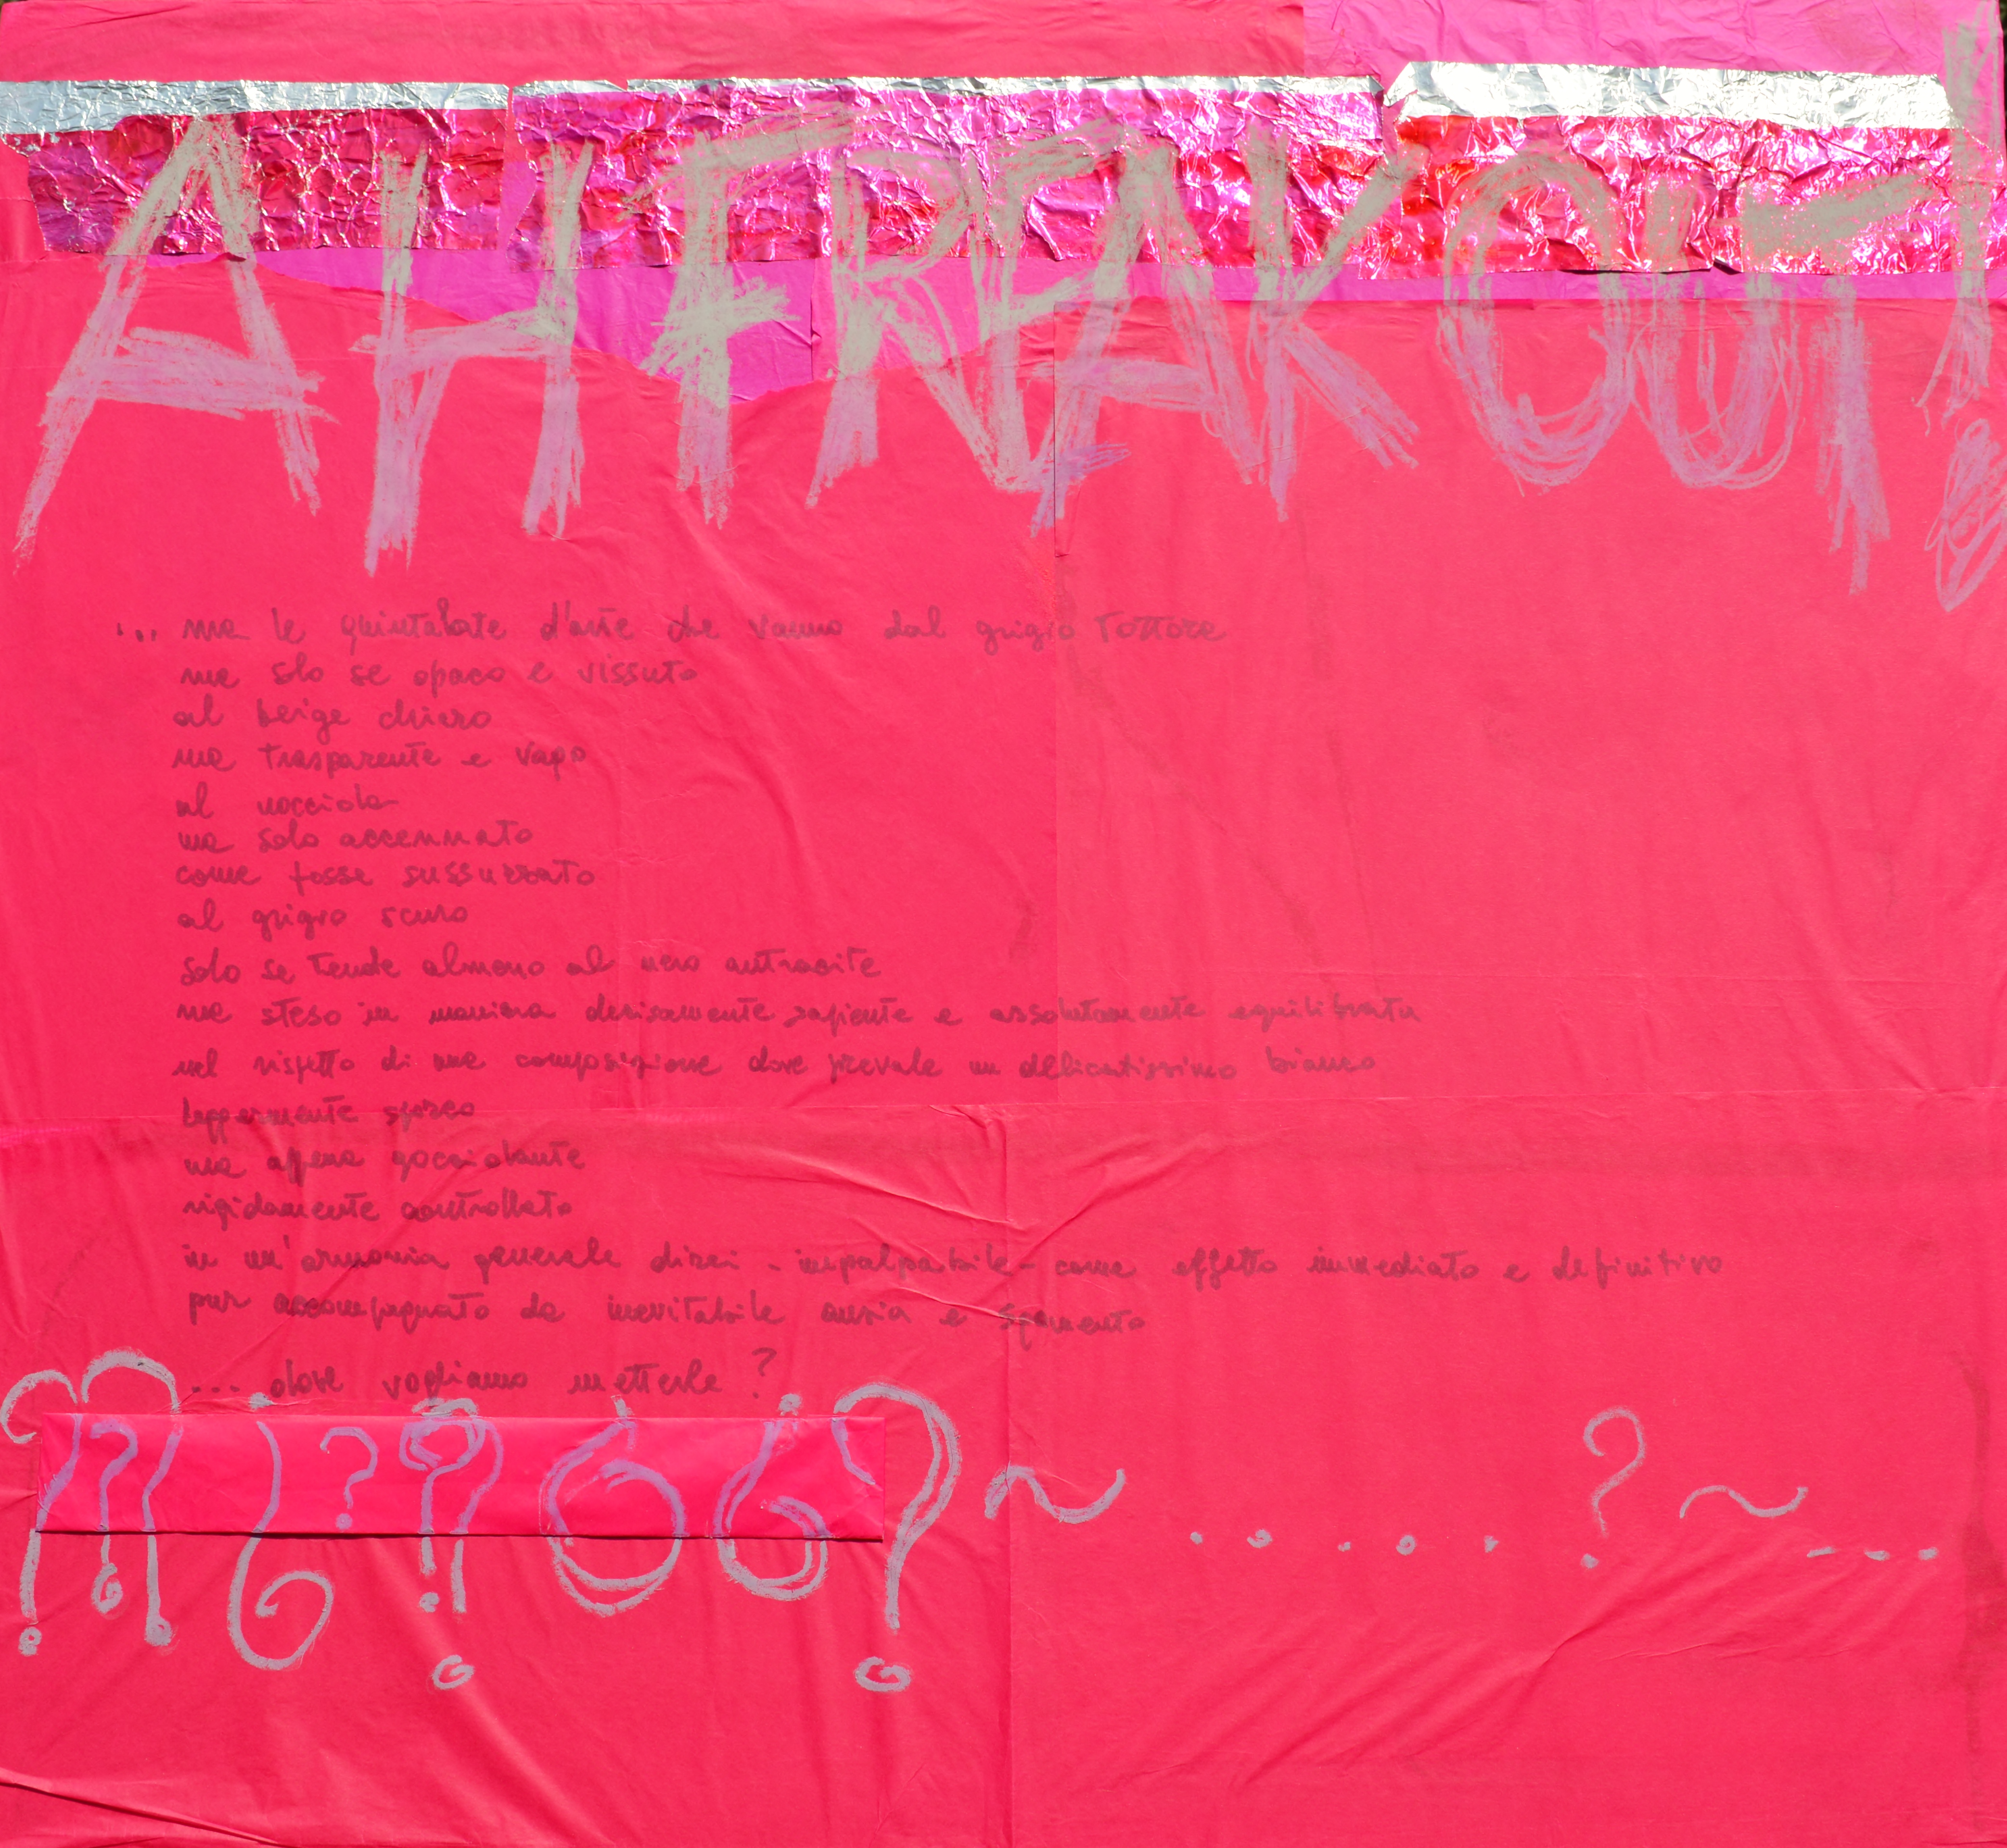 AH FREAK OUT!
... ma le quintalate d'arte che vanno dal grigio Tortora
ma solo se opaco e vissuto
al beige chiaro
ma trasparente e vago
al nocciola
ma solo accennato
come fosse sussurrato
al grigio scuro
solo se tende almeno al nero antracite
ma steso in maniera decisamente sapiente e assolutamente equilibrata
nel rispetto di una composizione dove prevale un delicatissimo bianco
leggermente sporco
ma appena gocciolante
rigidamente controllato
in un'armonia generale direi - impalpabile - come effetto immediato e definitivo
pur accompagnato da inevitabile ansia e sgomento
... dove vogliamo metterle?